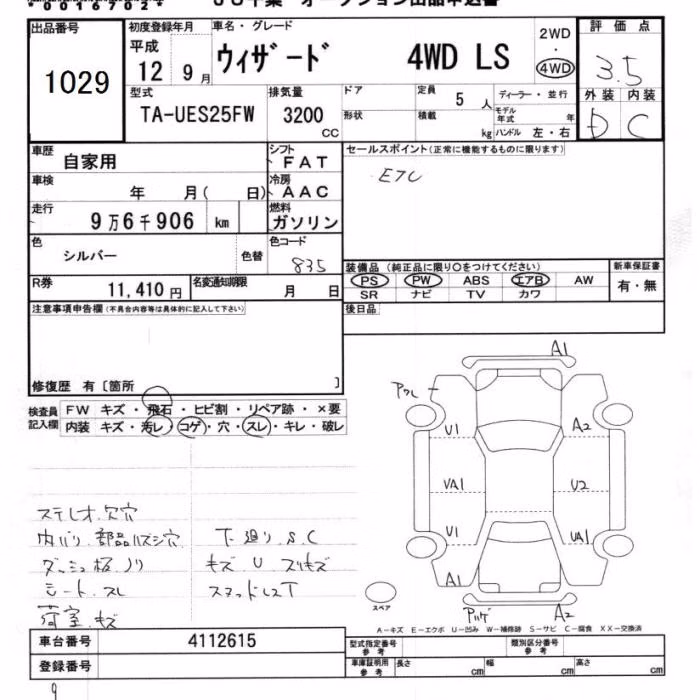 *0016702*
出品番号
1029
初度登録年月
平成
12 9月
車名・グレード
ウィザード 4WD LS
2WD
・
4WD
評価点
3.5
外装 内装
D C
型式
TA-UES25FW
排気量
3200
CC
ドア
形状
定員
5 人
積載
kg
ディーラー・並行
モデル年式 年
ハンドル 左・右
車歴
自家用
シフト
FAT
セールスポイント(正常に機能するものに限ります)
ETC
車検
年 月( 日)
冷房
AAC
走行
9万6千906 km
燃料
ガソリン
色
シルバー
色替
色コード
835
R券
11,410円
名変通知期限
月 日
装備品(純正品に限り○をつけてください)
PS PW ABS エアB AW
SR ナビ TV カワ
新車保証書
有・無
注意事項申告欄(不具合内容等は具体的に記入して下さい)
後日品
修復歴 有〔箇所 〕
検査員
記入欄
FW キズ・飛石・ヒビ割・リペア跡・×要
内装 キズ・汚レ・コゲ・穴・スレ・キレ・破レ
A1
U1
A2
UA1
U2
U1
UA1
A1
A2
スペア
ステレオ欠穴
内バリ.部品ハズシ穴
ダッシュ板ノリ
シート.スレ
荷室.キズ
下廻りS.C
キズ U スリキズ
スタッドレスT
A-キズ E-エクボ U-凹み W-補修跡 S-サビ C-腐食 XX-交換済
車台番号
4112615
登録番号
型式指定番号
参考
類別区分番号
参考
車庫証明用
参考
長さ cm
幅 cm
高さ cm
9